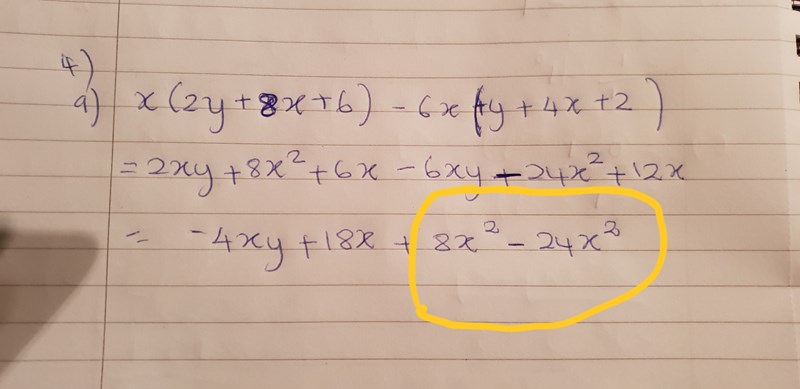 4)
a) x(2y+8x+6) - 6x(y+4x+2)
=2xy+8x²+6x-6xy-24x²+12x
= -4xy+18x+8x²-24x²